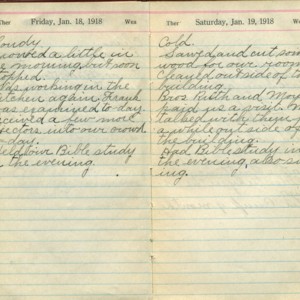 Ther Friday, Jan. 18, 1918 Wea
Cloudy
Snowed a little in
morning but soon
stopped.
Was working in the
kitchen again. Frank
was examined to day.
Received a few more
objectors into our crowd
to day.
Held our Bible study
in the evening.
Ther Saturday, Jan. 19, 1918 Wea
Cold.
Sawed and cut some
wood for our room.
Played outside of the
building.
Bros. Ruth and Moy
paid us a visit. We
talked with them for
a while out side of
the building.
Had Bible study in
the evening, also sing
ing.